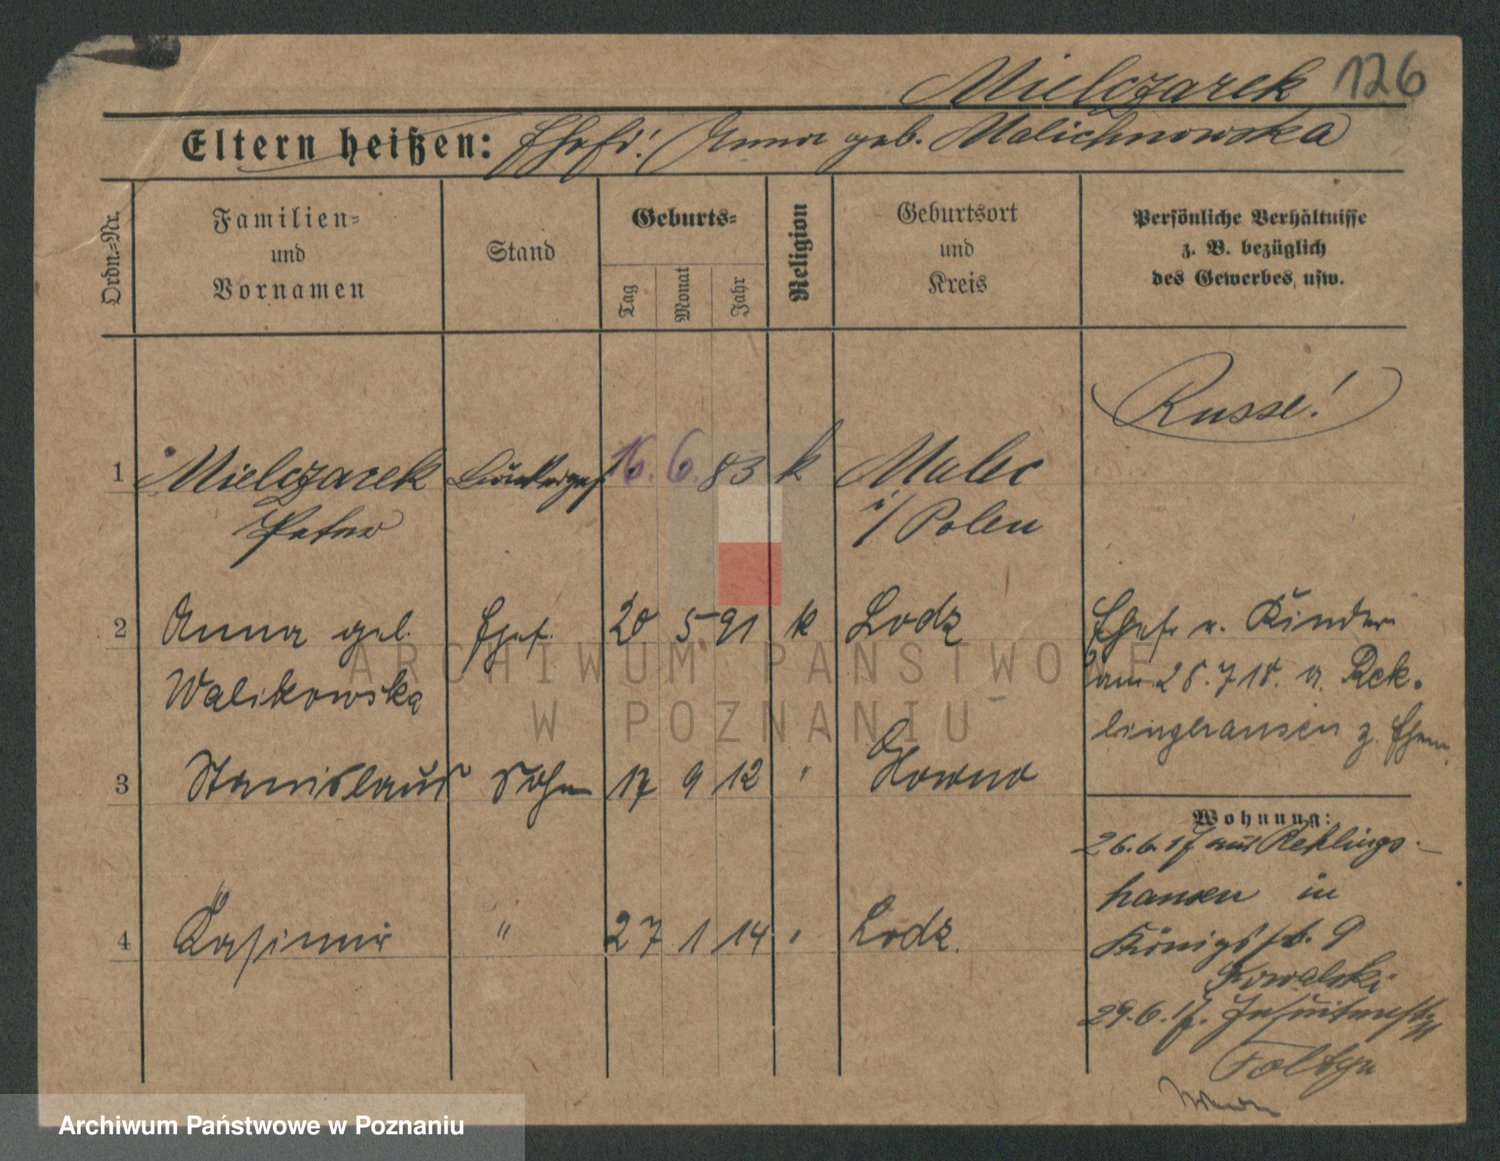 Mielczarek 126
Eltern heißen: Ehefr: (Anna geb. Malichnowska
Ordn.=Nr.
Familien=
und
Vornamen
Stand
Geburts=
Tag
Monat
Jahr
Religion
Geburtsort
und
Kreis
Persönliche Verhältnisse
z. B. bezüglich
des Gewerbes, usw.
Russe!
1 Mielczarek 16. 6. 83 k Malec
Peter i/Polen
2 Anna geb. Ehef. 20 5 91 k Lodz
Walikowska
Ehefr u. Kinder
am 28.7.18. a. Rek-
linghausen z.
3 Stanislaus Sohn 17 9 12 "
4 Kasimir " 27 1 14 " Lodz.
Wohnung:
26.6.17 aus Reklings-
hausen in
Königsstr. 9
Kowalski
29.6.17. Jesuitenstr
ARCHIWUM PAŃSTWOWE
W POZNANIU
Archiwum Państwowe w Poznaniu